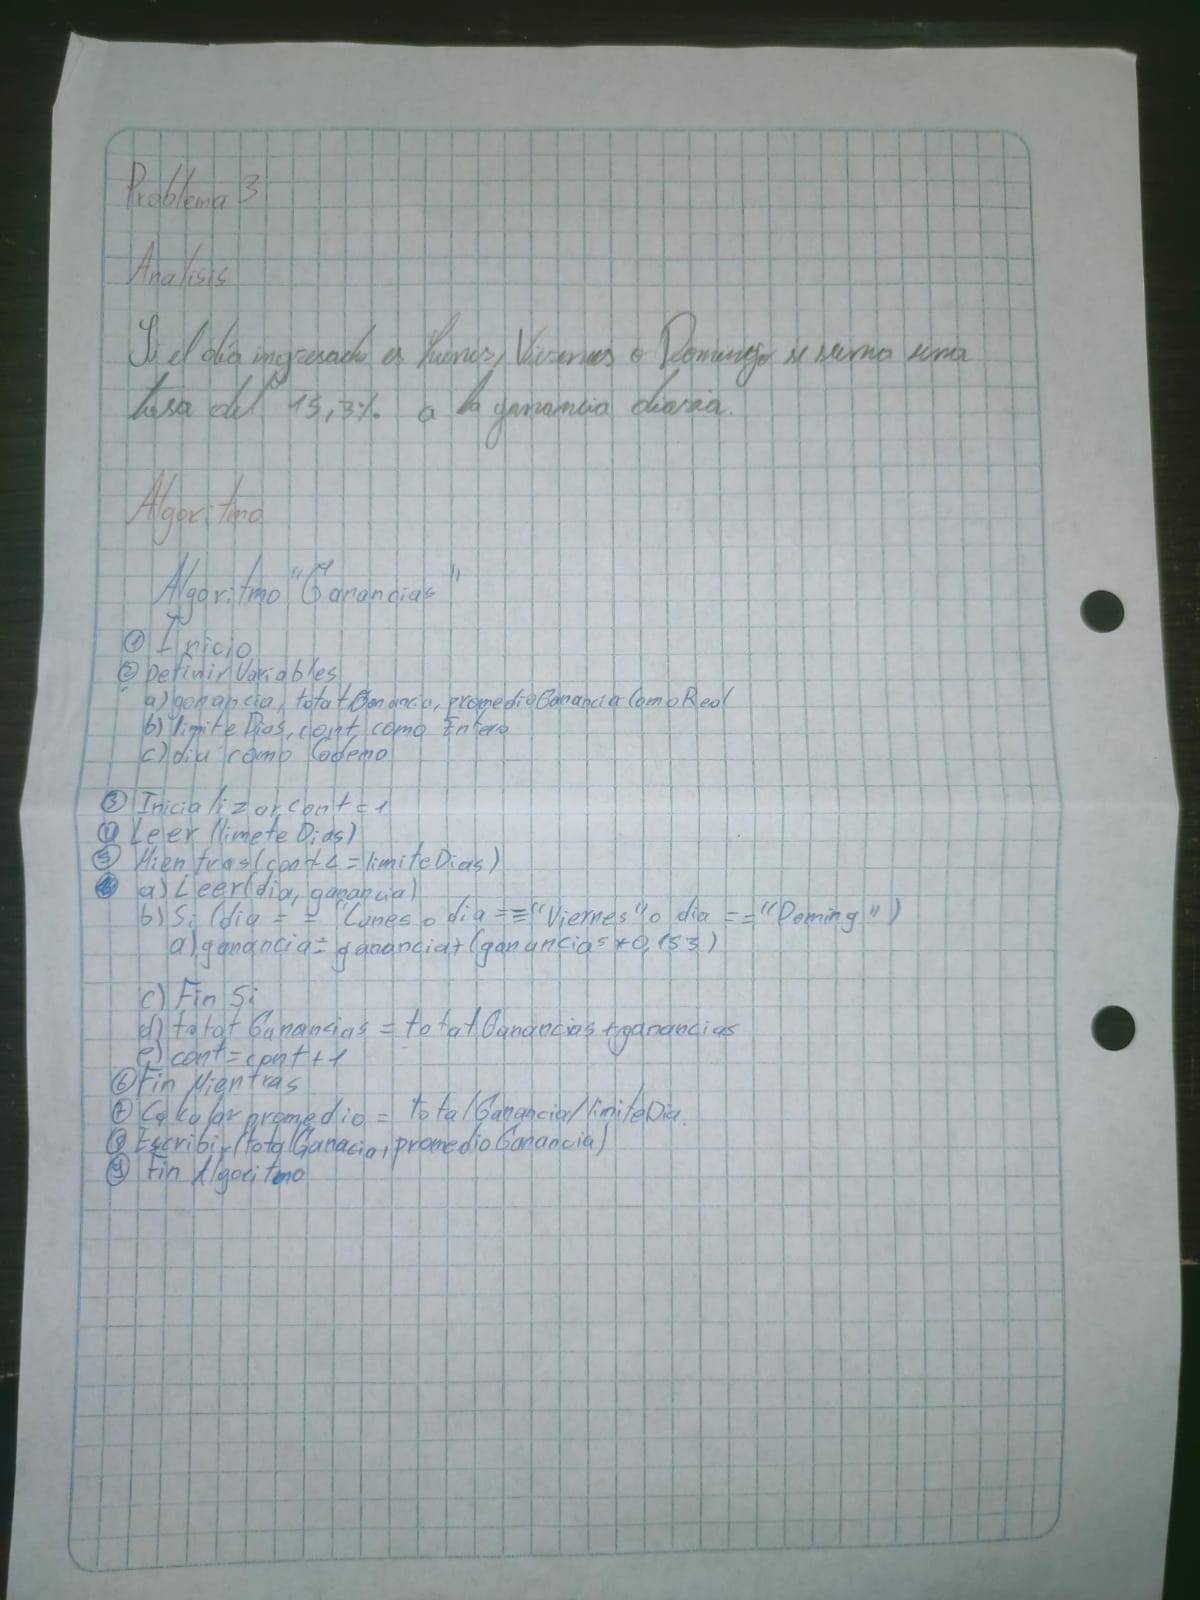 Problema 3
Analisis
Si el día ingresado es Lunes, Viernes o Domingo se suma una
tasa del 15,3% a la ganancia diaria.
Algoritmo
Algoritmo "Ganancias"
① Inicio
② Definir Variables
a) ganancia, totalGanancia, promedioGanancia Como Real
b) limiteDias, cont como Entero
c) dia como Cadena
③ Inicializar cont = 1
④ Leer (limeteDias)
⑤ Mientras (cont <= limiteDias)
a) Leer (dia, ganancia)
b) Si (dia == "Lunes o dia == "Viernes" o dia == "Doming")
a) ganancia = ganancia + (ganancias * 0,153)
c) Fin Si
d) totalGanancias = totalGanancias + ganancias
e) cont = cont + 1
⑥ Fin Mientras
⑦ Calcular promedio = totalGanancia/limiteDia
⑧ Escribir (totalGanacia, promedioGanancia)
⑨ Fin Algoritmo